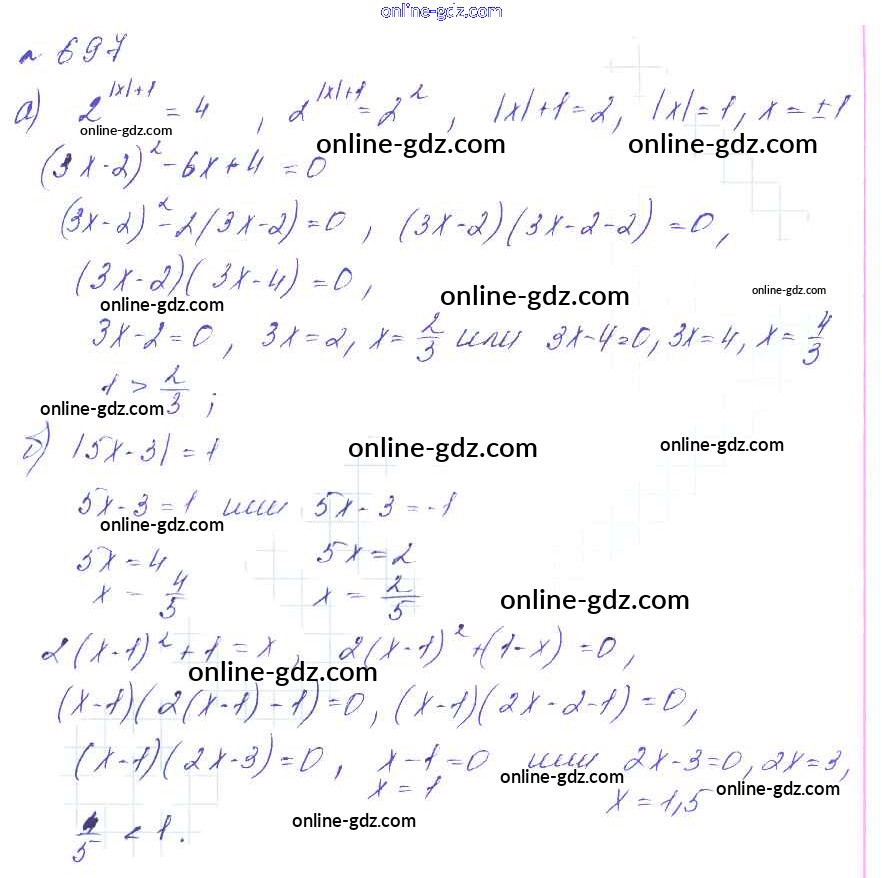 online-gdz.com
№ 697
а) 2^{|x|+1} = 4 , 2^{|x|+1} = 2^2 , |x|+1=2, |x|=1, x=±1
online-gdz.com online-gdz.com online-gdz.com
(3x-2)^2 - 6x+4 = 0
(3x-2)^2 - 2(3x-2)=0 , (3x-2)(3x-2-2) =0,
(3x-2)(3x-4)=0,
online-gdz.com online-gdz.com online-gdz.com
3x-2=0, 3x=2, x=2/3 или 3x-4=0, 3x=4, x=4/3
1 > 2/3 ;
online-gdz.com
б) |5x-3|=1
online-gdz.com online-gdz.com
5x-3=1 или 5x-3=-1
online-gdz.com
5x=4 5x=2
x = 4/5 x = 2/5
online-gdz.com
2(x-1)^2+1=x, 2(x-1)^2+(1-x)=0,
online-gdz.com
(x-1)(2(x-1)-1)=0, (x-1)(2x-2-1)=0,
(x-1)(2x-3)=0, x-1=0 или 2x-3=0, 2x=3,
online-gdz.com online-gdz.com
x=1 x=1,5
online-gdz.com
4/5 < 1.